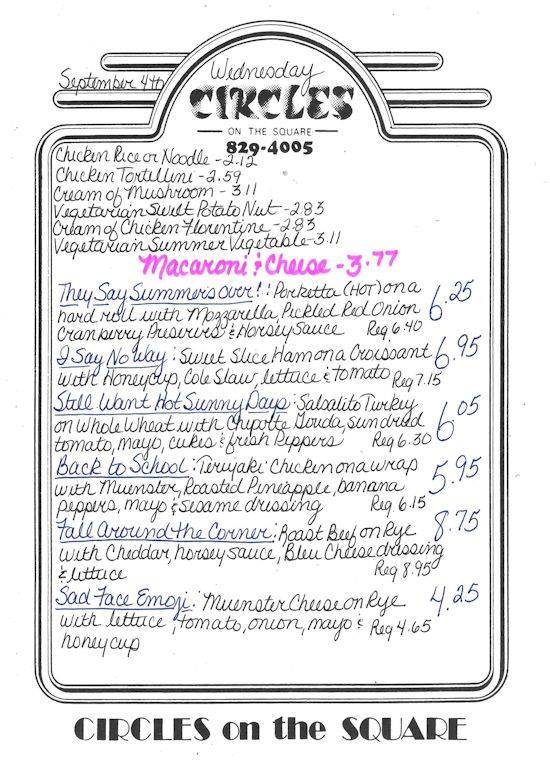 September 4th Wednesday
CIRCLES
ON THE SQUARE
829-4005
Chicken Rice or Noodle - 2.12
Chicken Tortellini - 2.59
Cream of Mushroom - 3.11
Vegetarian Sweet Potato Nut - 2.83
Cream of Chicken Florentine - 2.83
Vegetarian Summer Vegetable - 3.11
Macaroni & Cheese - 3.77
They Say Summers over!: Porketta (HOT) on a
hard roll with Mozzarella, Pickled Red Onion 6.25
Cranberry Preserves & Horsey Sauce Reg 6.40
I Say No Way: Sweet Slice Ham on a Croissant 6.95
with Honeycup, Cole Slaw, lettuce & tomato Reg 7.15
Still Want Hot Sunny Days: Salsalito Turkey
on Whole Wheat with Chipotle Gouda, sundried 6.05
tomato, mayo, cukes & fresh Peppers Reg 6.30
Back to School: Teriyaki Chicken on a wrap
with Muenster, Roasted Pineapple, banana 5.95
peppers, mayo & sesame dressing Reg 6.15
Fall Around the Corner: Roast Beef on Rye 8.75
with Cheddar, horsey sauce, Bleu Cheese dressing
& lettuce Reg 8.95
Sad Face Emoji: Muenster Cheese on Rye 4.25
with lettuce, tomato, onion, mayo & Reg 4.65
honeycup
CIRCLES on the SQUARE